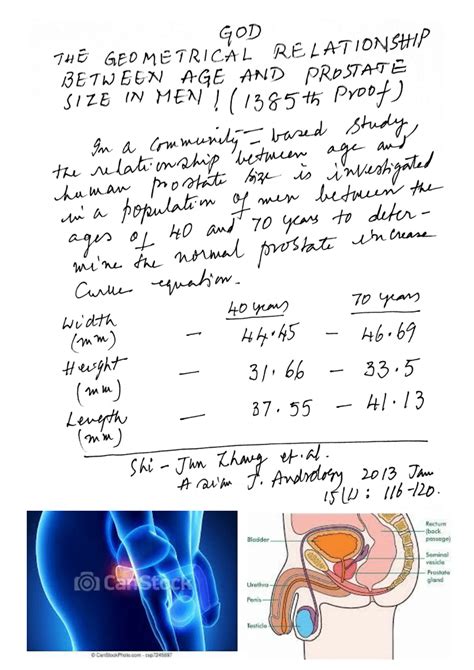 GOD
THE GEOMETRICAL RELATIONSHIP
BETWEEN AGE AND PROSTATE
SIZE IN MEN! (1385th Proof)
In a community-based study,
the relationship between age and
human prostate size is investigated
in a population of men between the
ages of 40 and 70 years to deter-
mine the normal prostate increase
Curve equation.
40 years 70 years
Width (mm) — 44.45 — 46.69
Height (mm) — 31.66 — 33.5
Length (mm) — 37.55 — 41.13
Shi-Jun Zhang et.al.
Asian J. Andrology 2013 Jan
15(1): 116-120.
CanStock
© CanStockPhoto.com
Bladder
Urethra
Penis
Testicle
Rectum
(back
passage)
Seminal
vesicle
Prostate
gland